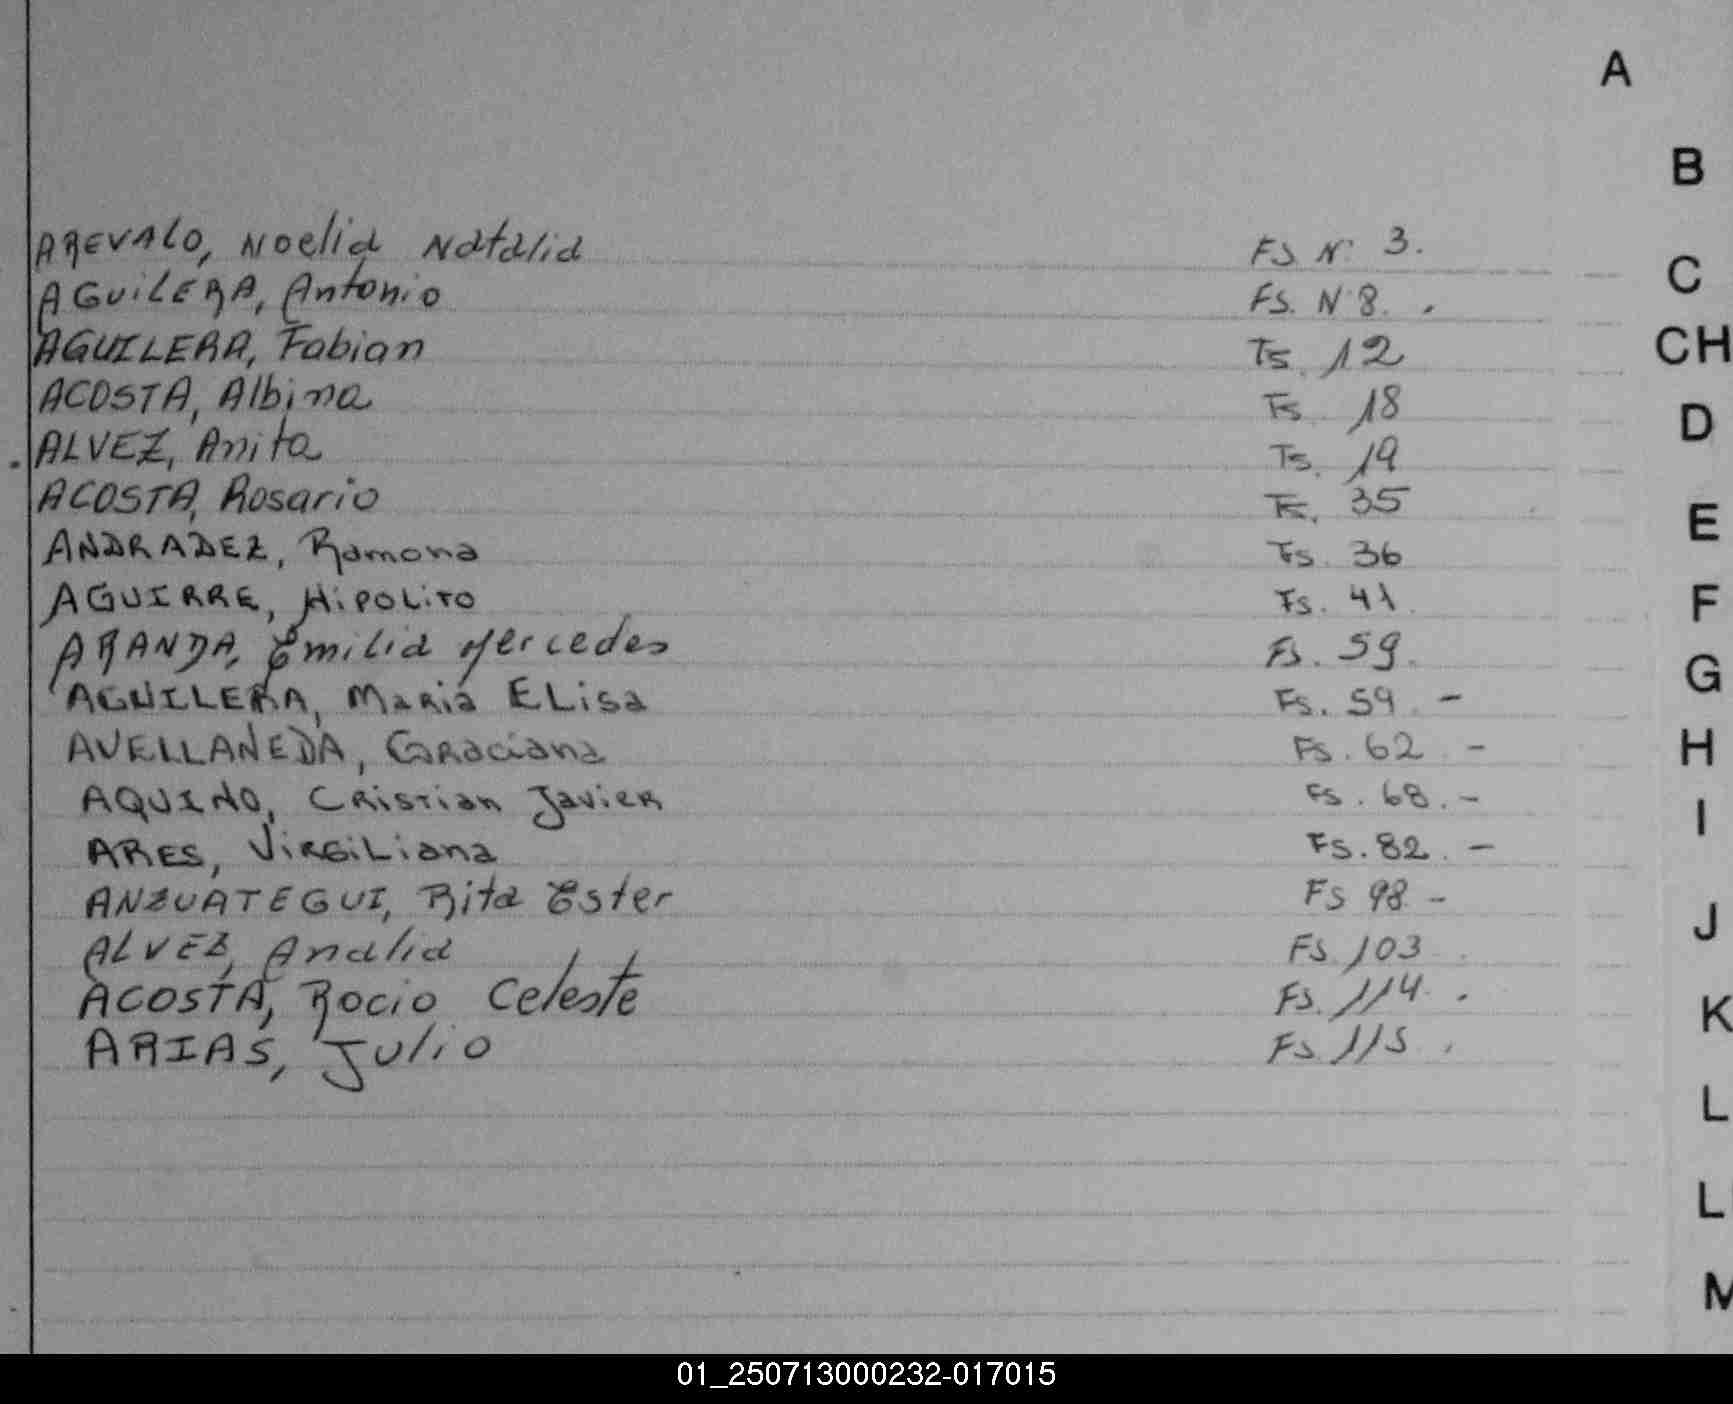 A
B
AREVALO, Noelia Natalia FS Nº 3.
C
AGUILERA, Antonio FS. Nº 8. .
CH
AGUILERA, Fabian Fs. 12
ACOSTA, Albina Fs 18
D
ALVEZ, Anita Fs. 19
ACOSTA, Rosario Fs. 35
E
ANDRADEZ, Ramona Fs. 36
AGUIRRE, Hipolito Fs. 41
F
ARANDA, Emilia Mercedes Fs. 59.
G
AGUILERA, Maria ELisa Fs. 59. -
AVELLANEDA, Graciana Fs. 62 -
H
AQUINO, Cristian Javier Fs. 68. -
I
ARES, VirgiLiana Fs. 82. -
ANZUATEGUI, Rita Ester FS 98 -
J
ALVEZ, Analia FS 103
ACOSTA, Rocio Celeste Fs. 114. .
K
ARIAS, Julio Fs 115 .
L
L
M
01_250713000232-017015